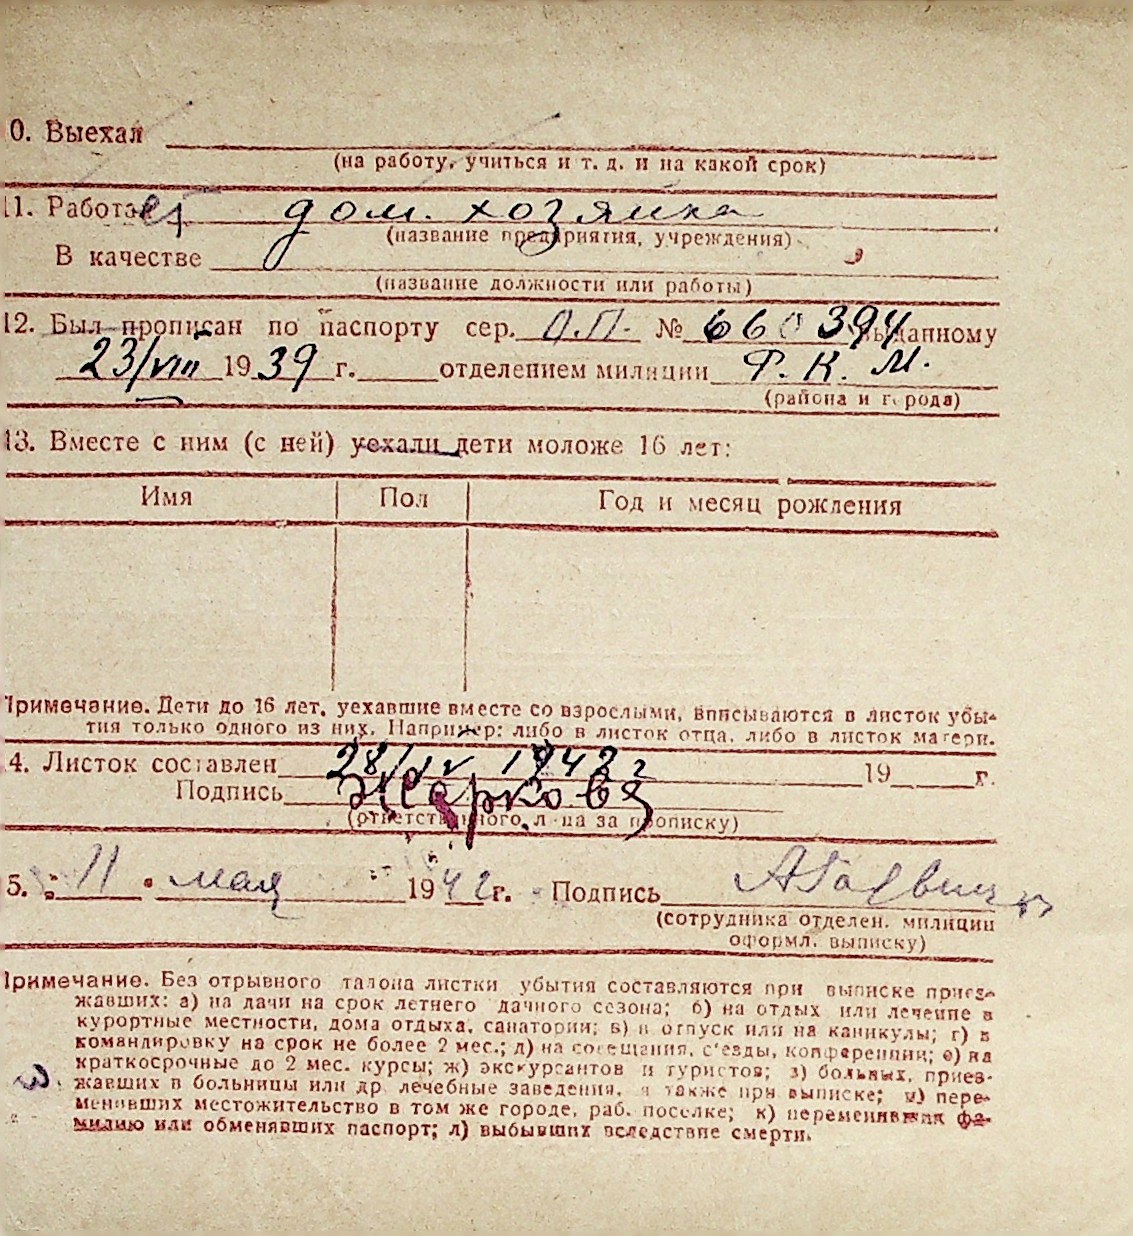 0. Выехал
(на работу, учиться и т. д. и на какой срок)
11. Работает дом. хозяйка
(название предприятия, учреждения)
В качестве
(название должности или работы)
12. Был прописан по паспорту сер. О.П. № 660394 выданному
23/VIII 1939 г. отделением милиции Ф. К. М.
(района и города)
13. Вместе с ним (с ней) уехали дети моложе 16 лет:
Имя Пол Год и месяц рождения
Примечание. Дети до 16 лет, уехавшие вместе со взрослыми, вписываются в листок убы-
тия только одного из них. Например: либо в листок отца, либо в листок матери.
4. Листок составлен 28/IV 1942 г 19 г.
Подпись Жаркова
(ответственного л-ца за прописку)
5. 11 мая 1942 г. Подпись
(сотрудника отделен. милиции
оформл. выписку)
Примечание. Без отрывного талона листки убытия составляются при выписке приез-
жавших: а) на дачи на срок летнего дачного сезона; б) на отдых или лечение в
курортные местности, дома отдыха, санатории; в) в отпуск или на каникулы; г) в
командировку на срок не более 2 мес.; д) на совещания, с'езды, конференции; е) на
краткосрочные до 2 мес. курсы; ж) экскурсантов и туристов; з) больных, приез-
жавших в больницы или др. лечебные заведения, а также при выписке; и) пере-
менивших местожительство в том же городе, раб. поселке; к) переменивших фа-
милию или обменявших паспорт; л) выбывших вследствие смерти.